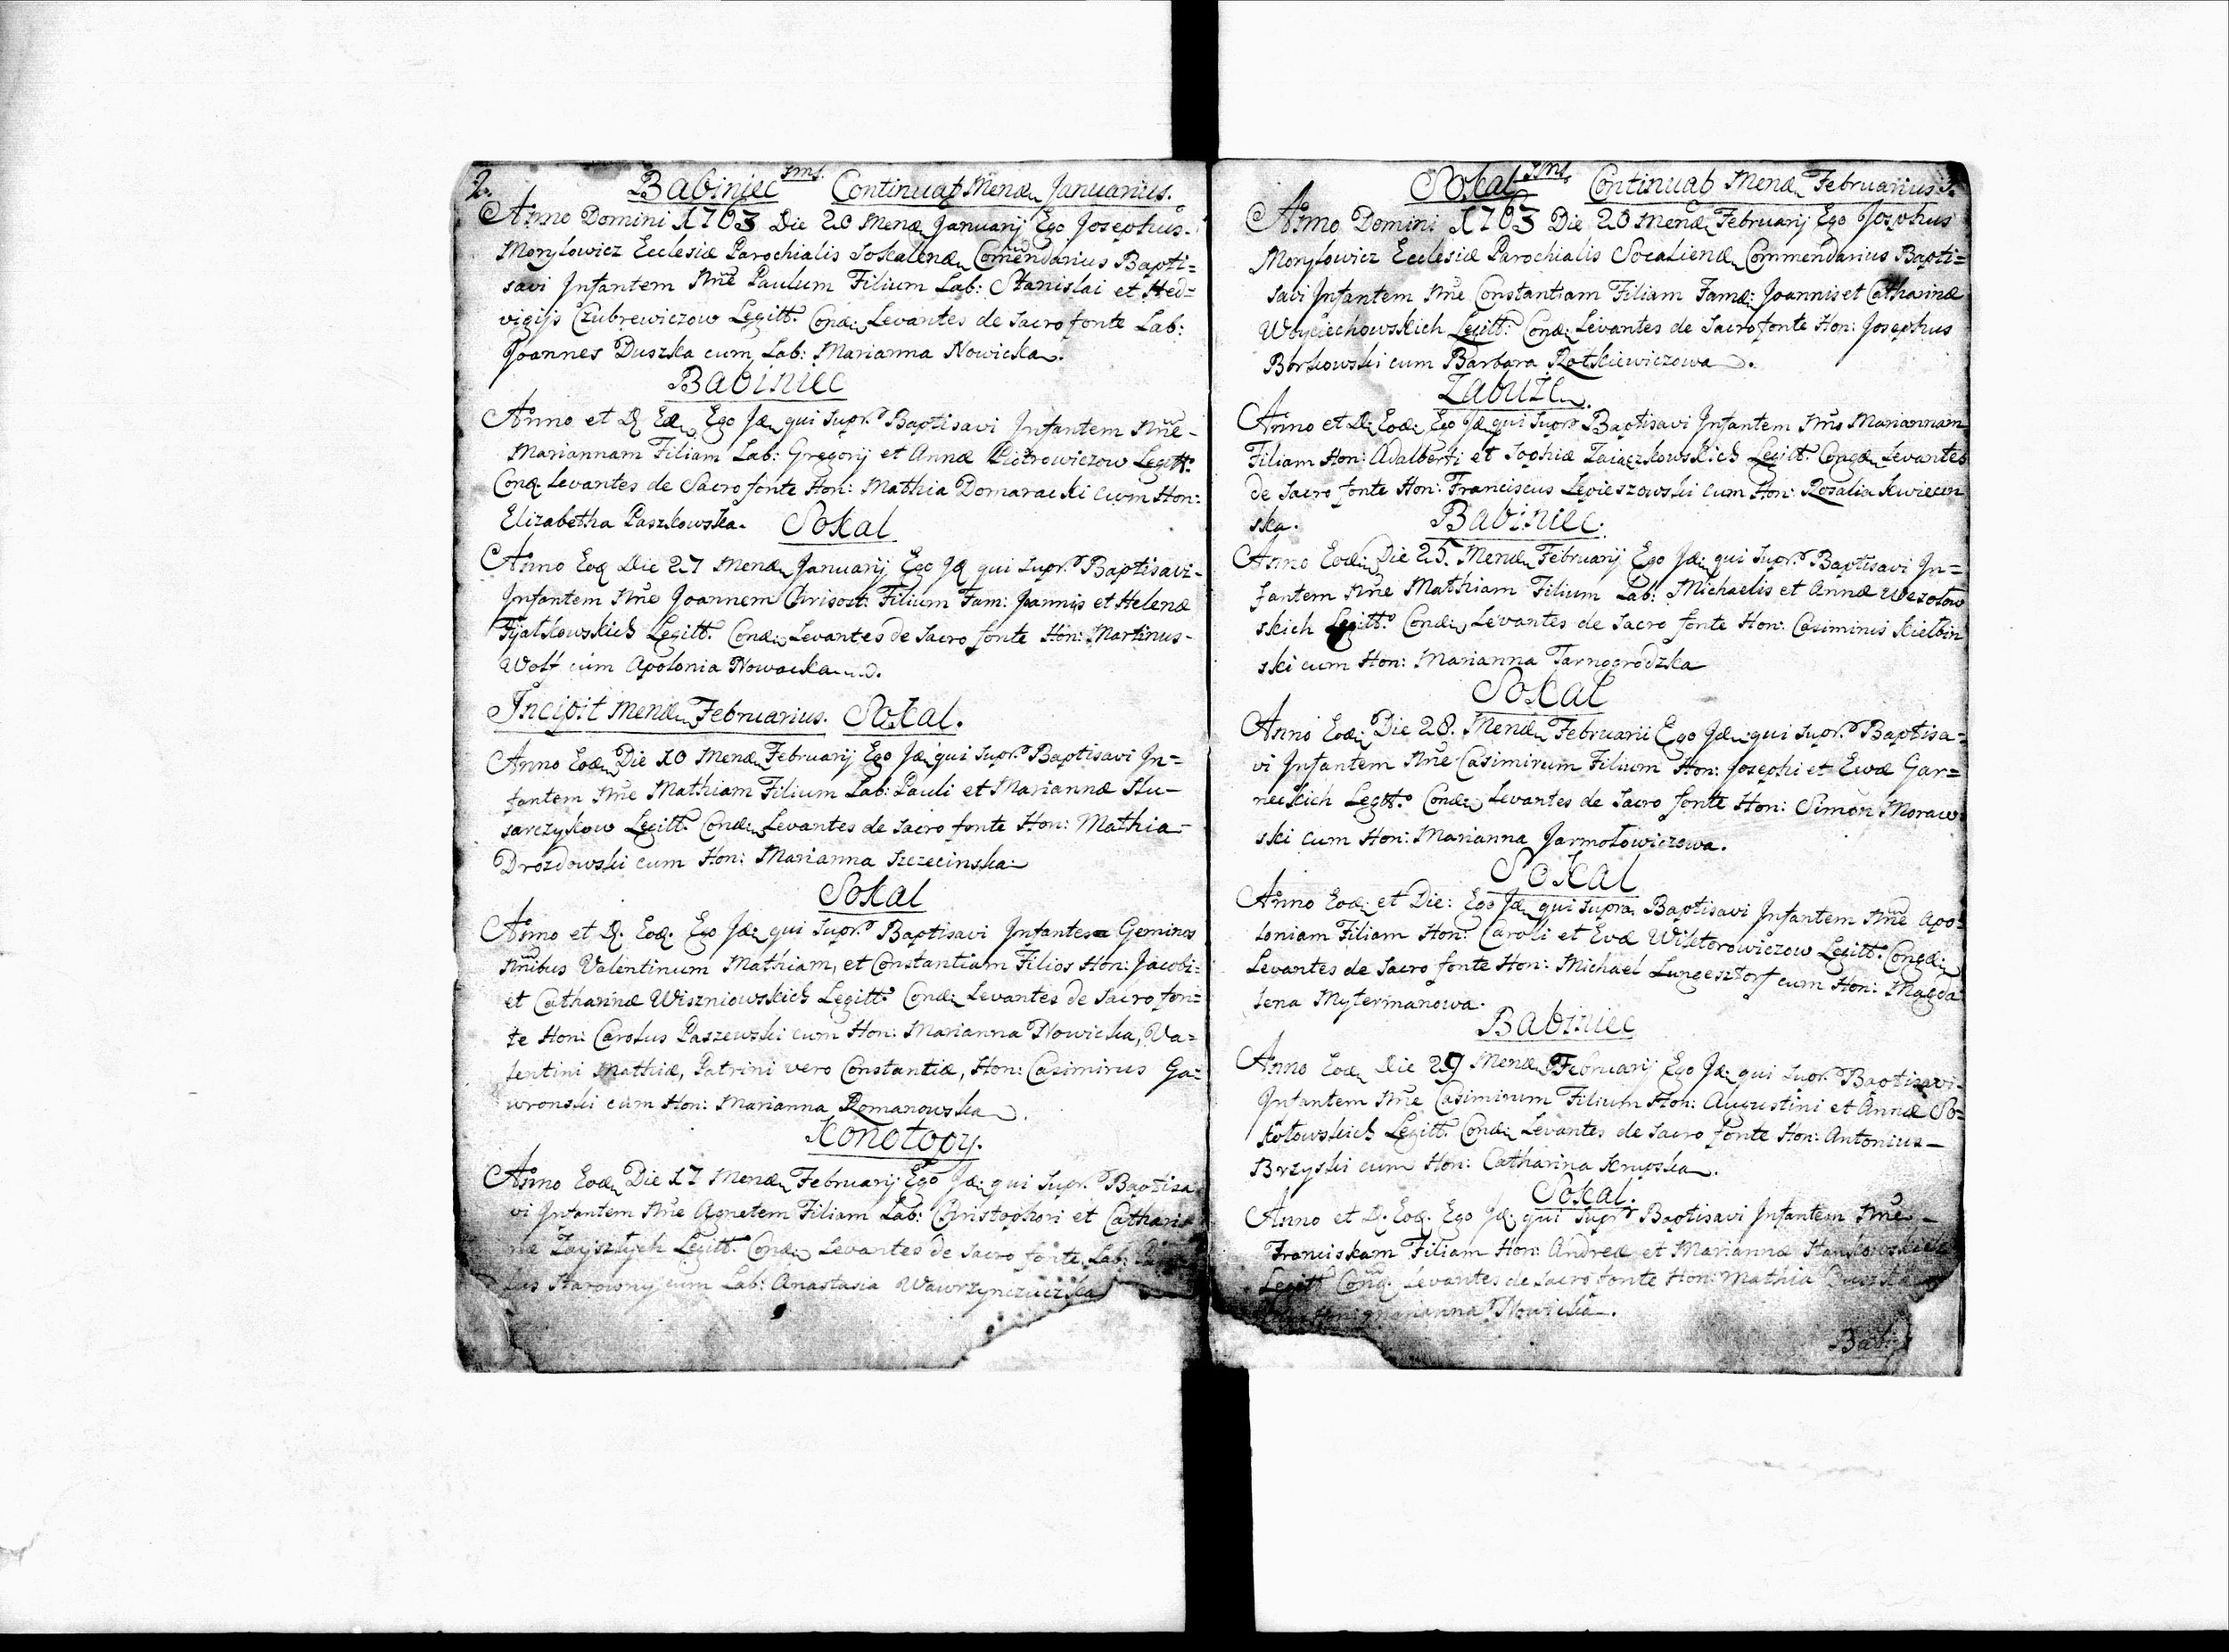 2.
Babiniec sms. Continuat Mensæ Januarius.
Anno Domini 1763 Die 20 Mensæ Januarij Ego Josephus
Morylowicz Ecclesiæ Parochialis Sokalensæ Comendarius Bapti=
savi Infantem Nne Paulum Filium Lab: Stanislai et Hed=
vigijs Czubrewiczow Legitt. Conæ: Levantes de Sacro fonte Lab:
Joannes Duszka cum Lab: Marianna Nowicka.
Babiniec
Anno et D. Eæ. Ego Jæ. qui Supr. Baptisavi Infantem Nne -
Mariannam Filiam Lab: Gregorij et Annæ Piotrowiczow Legitt:
Conæ. Levantes de Sacro fonte Hon: Mathia Domaracki cum Hon:
Elizabetha Paszkowska. Sokal
Anno Eoæ Die 27 Mensæ Januarij Ego Jæ qui Supr. Baptisavi -
Infantem Nne Joannem Chrisost: Filium Fam: Joannis et Helenæ
Fijałkowskich Legitt. Conæ: Levantes de Sacro fonte Hon: Martinus -
Wolf cum Apolonia Nowacka.
Incipit Mensæ Februarius. Sokal.
Anno Eoæ Die 10 Mensæ Februarij Ego Jæ qui Supr. Baptisavi In=
fantem Nne Mathiam Filium Lab: Pauli et Mariannæ Slu-
sarczykow Legitt. Conæ: Levantes de Sacro fonte Hon: Mathia -
Drozdowski cum Hon: Marianna Szczecinska
Sokal
Anno et D. Eoæ. Ego Jæ: qui Supr. Baptisavi Infantes Geminos
Nnibus Valentinum Mathiam, et Constantiam Filios Hon: Jacobi =
et Catharinæ Wiszniowskich Legitt. Conæ: Levantes de Sacro fon=
te Hon: Carolus Paszewski cum Hon: Marianna Nowicka, Va=
lentini Mathiæ, Patrini vero Constantiæ, Hon: Casimirus Ga=
wronski cum Hon: Marianna Romanowska.
Konotopy.
Anno Eoæ Die 17 Mensæ Februarij Ego Jæ: qui Supr. Baptisa
vi Infantem Nne Agnetem Filiam Lab: Christophori et Cathari
næ Legitt. Conæ: Levantes de Sacro fonte Lab:
lus cum Lab: Anastasia
Sokal sms. Continuat Mensæ Februarius 3.
Anno Domini 1763 Die 20 Mensæ Februarij Ego Josephus
Morylowicz Ecclesiæ Parochialis Socaliensæ Commendarius Bapti=
savi Infantem Nne Constantiam Filiam Famæ: Joannis et Catharinæ
Woyciechowskich Legitt: Conæ: Levantes de Sacro fonte Hon: Josephus
Borkowski cum Barbara Rotkiewiczowa.
Zabuże.
Anno et D. Eoæ: Ego Jæ qui Supr Baptisavi Infantem Nne Mariannam
Filiam Hon: Adalberti et Sophiæ Zaiączkowskich Legitt. Congæ. Levantes
de Sacro fonte Hon: Franciscus Legieszowski cum Hon: Rosalia Kwiecin
ska. Babiniec.
Anno Eoæ: Die 25. Mensæ Februarij Ego Jæ: qui Supr. Baptisavi In=
fantem Nne Mathiam Filium Lab: Michaelis et Annæ Wesołow
skich Legitt. Conæ: Levantes de Sacro fonte Hon: Casimirus Kiełbin
ski cum Hon: Marianna Tarnogrodzka
Sokal
Anno Eoæ: Die 28. Mensæ Februarii Ego Jæ: qui Supr. Baptisa=
vi Infantem Nne Casimirum Filium Hon: Josephi et Ewæ Gar=
neckich Legitt. Conæ: Levantes de Sacro fonte Hon: Simon Moraw
ski cum Hon: Marianna Jarmołowiczowa.
Sokal
Anno Eoæ: et Die: Ego Jæ. qui Supra. Baptisavi Infantem Nne Apo=
loniam Filiam Hon: Caroli et Evæ Wiktorowiczow Legitt. Congæ:
Levantes de Sacro fonte Hon: Michael Lungesztorf cum Hon: Magda
lena Mytermanowa.
Babiniec
Anno Eoæ Die 29 Mensæ Februarij Ego Jæ. qui Supr. Baptisavi -
Infantem Nne Casimirum Filium Hon: Augustini et Annæ So=
kołowskich Legitt. Conæ: Levantes de Sacro fonte Hon: Antonius -
Brzyski cum Hon: Catharina Krupska.
Sokal.
Anno et D. Eoæ. Ego Jæ: qui Supr Baptisavi Infantem Nne -
Franciskam Filiam Hon: Andreæ et Mariannæ Stankowskich
Legitt Conæ: Levantes de Sacro fonte Hon: Mathia Duszka
Hon: Marianna Nowicka.
Babi